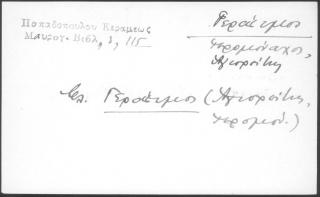 Παπαδοπούλου Κεραμέως
Μαυρογ. Βιβλ, 1, 115
Γεράσιμος
ιερομόναχος,
Ἁγιορείτης
Βλ. Γεράσιμος (Ἁγιορείτης,
ιερομόν.)